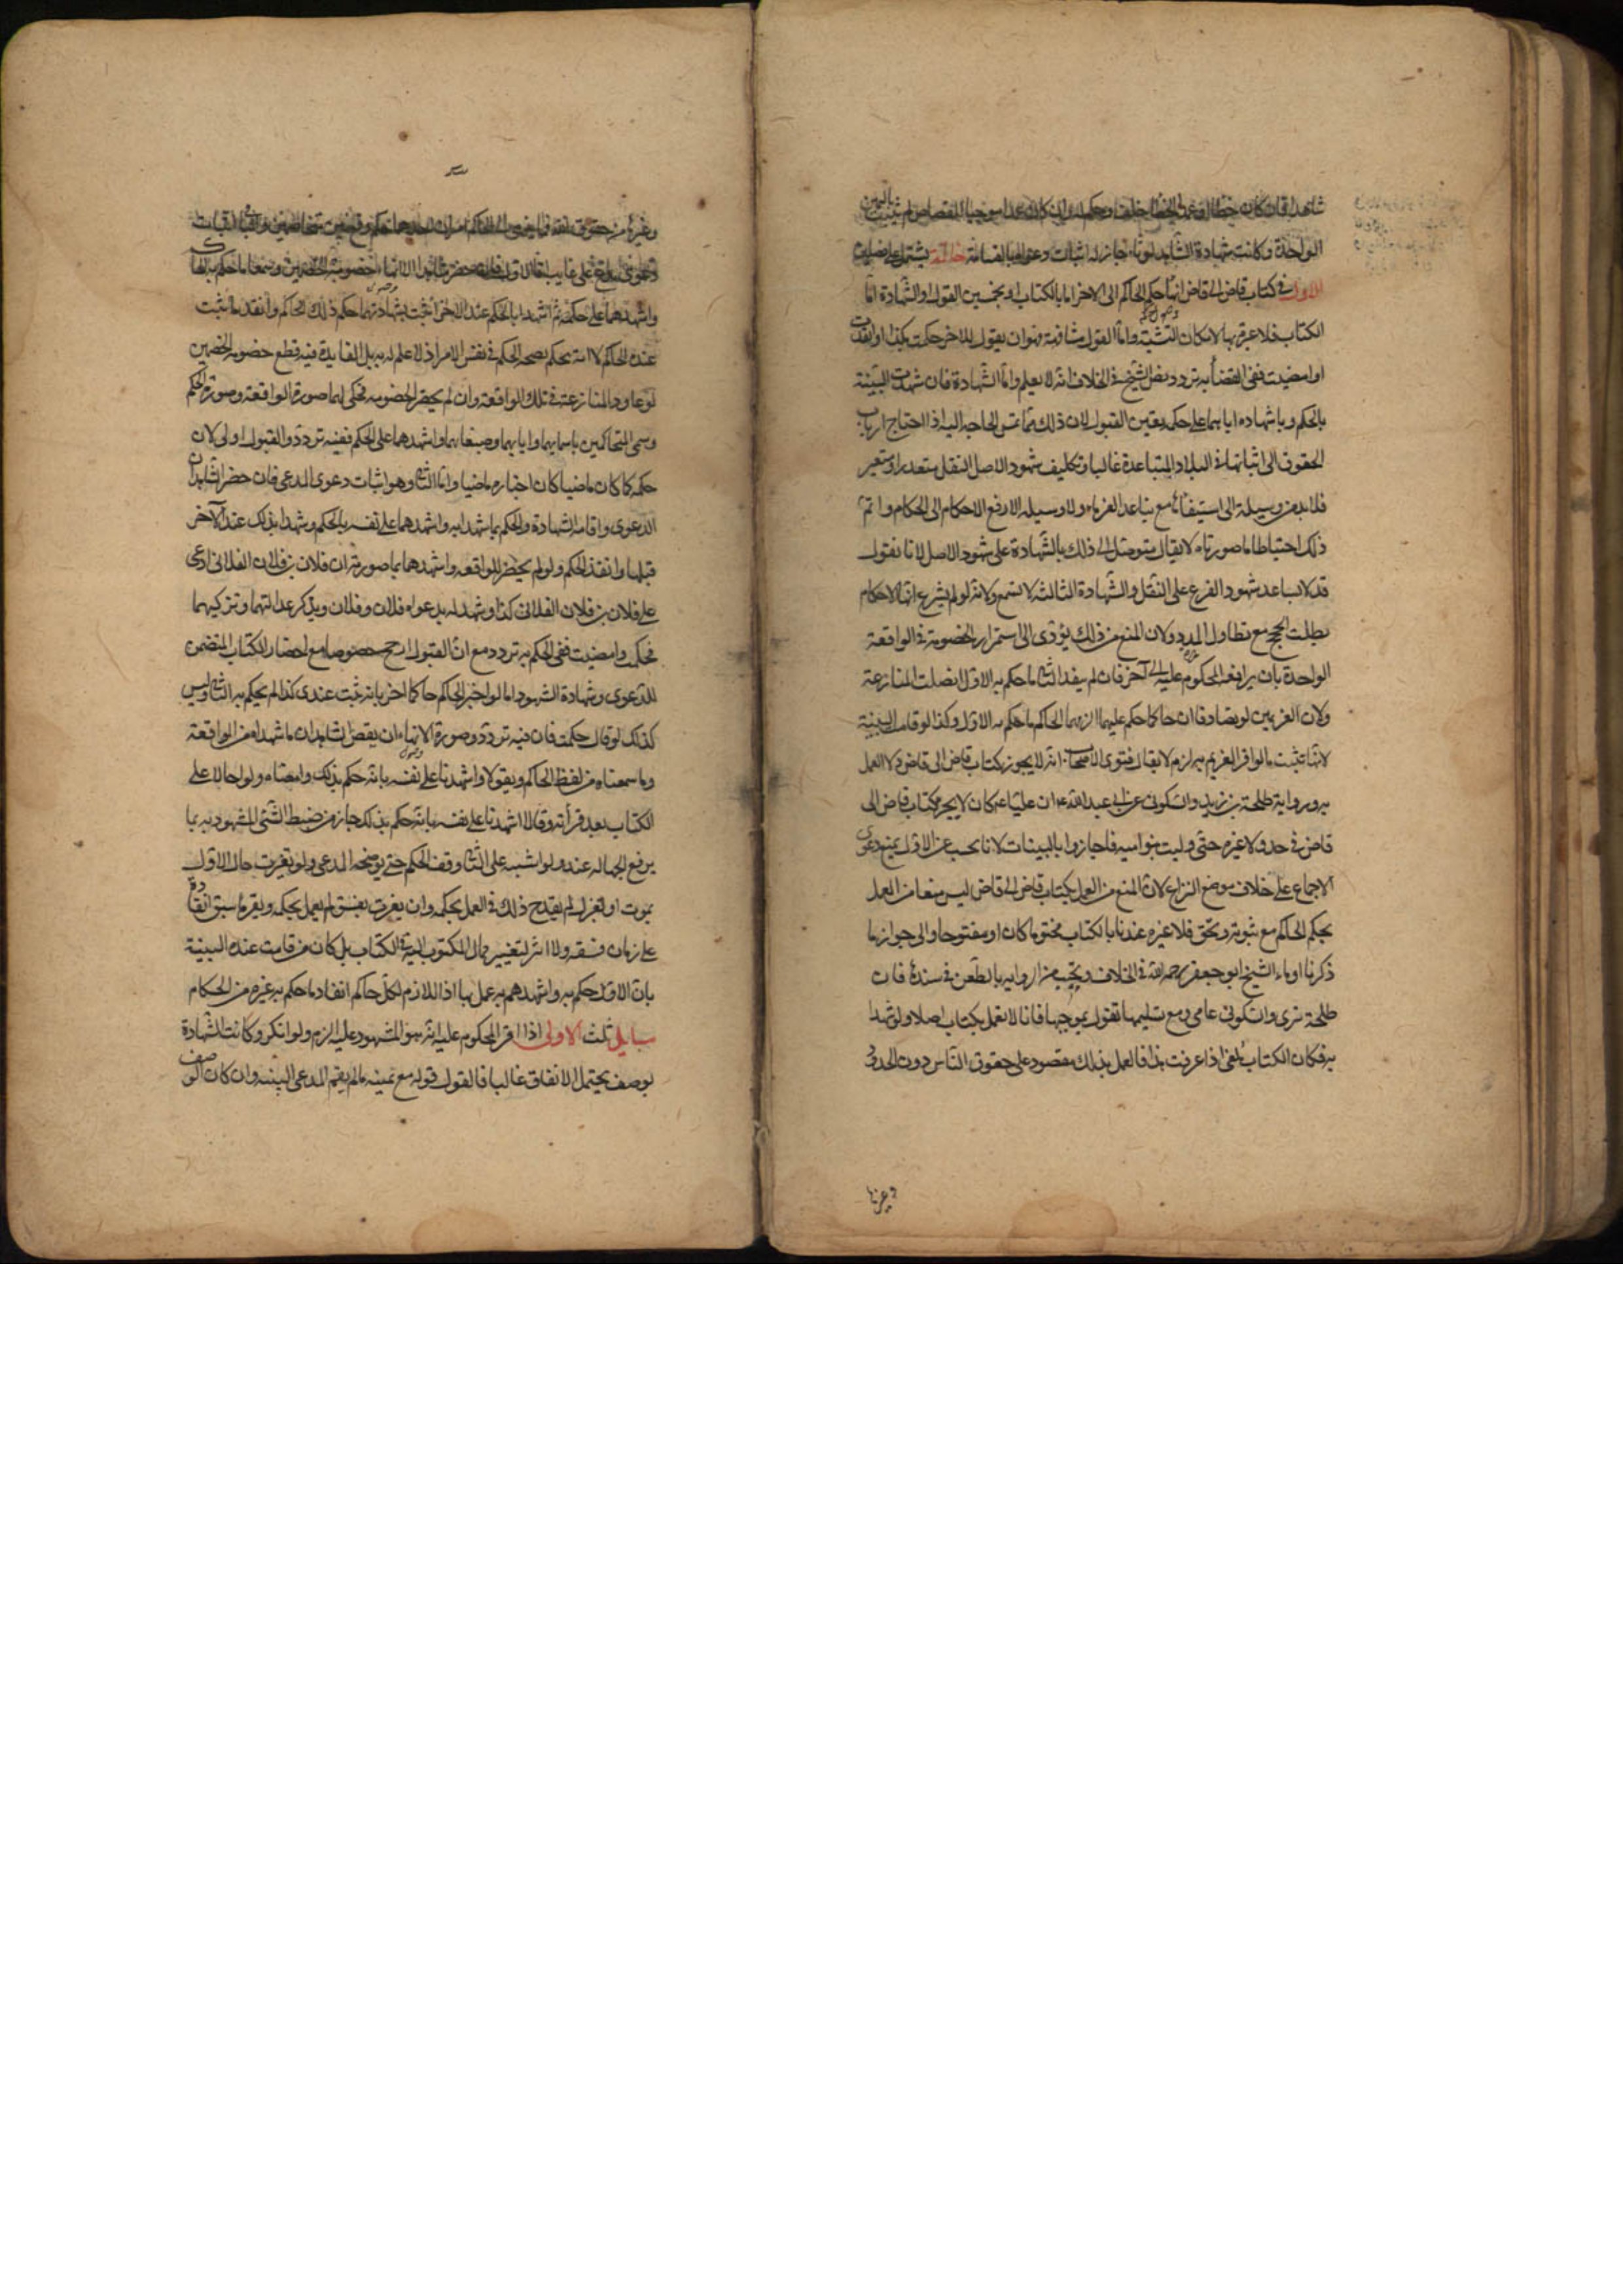 شاهدا فان كان خطا او عمد الخطا حلف وحكم له وان كان عمدا موجبا للقصاص لم يثبت باليمين
الواحدة وكانت شهادة الشاهد لوثا وجاز له اثبات دعواه بالقسامة خاتمة يشتمل على فصلين
الاول في كتاب قاض الى قاض انهاء حكم الحاكم الى الاخر اما بالكتابة او بخمسين القول او الشهادة اما
الكتاب فلا عبرة بها لامكان التشبيه واما القول مشافهة فهو ان يقول للاخر حكمت بكذا او انفذت
او امضيت ففي القضاء به تردد نص الشيخ في الخلاف انه لا يعلم واما الشهادة فان شهدت البينة
بالحكم وباشهاده اياهما على حكمه تعين القبول لان ذلك مما تمس الحاجه اليه اذ احتياج ارباب
الحقوق الى اثباتها في البلاد المتباعدة غالبا وتكليف شهود الاصل التنقل متعذر او متعسر
فلا بد من وسيلة الى استيفائها مع تباعد الغرماء ولا وسيله الا رفع الاحكام الى الحكام واتم
ذلك احتياطا ما صورناه لا يقال يتوصل الى ذلك بالشهادة على شهود الاصل لانا نقول
قد لا يساعد شهود الفرع على التنقل والشهادة الثالثة لا تسمع ولانه لو لم يشرع انهاء الاحكام
بطلت الحجج مع تطاول المدد ولان المنع من ذلك يؤدى الى استمرار الخصومة في الواقعة
الواحدة بان يرافعه المحكوم عليه الى آخر فان لم ينفذ الثانى ما حكم به الاول اتصلت المنازعة
ولان الغريمين لو تصادقا ان حاكما حكم عليهما الزمهما الحاكم ما حكم به الاول وكذا لو قامت البينة
لانها تثبت ما لو اقر الغريم به لزم لا يقال فتوى الاصحاب انه لا يجوز كتاب قاض الى قاض ولا العمل
به ورواية طلحة بن زيد والسكونى عن ابى عبد الله ع ان عليا ع كان لا يجيز كتاب قاض الى
قاض في حد ولا غيره حتى وليت بنو اميه فاجازوا بالبينات لانا نجيب عن الاول بمنع دعوى
الاجماع على خلاف موضع النزاع لان المنع من العمل بكتاب قاض الى قاض ليس منعا من العمل
بحكم الحاكم مع ثبوته ونحن فلا عبرة عندنا بالكتاب مختوما كان او مفتوحا والى جواز ما
ذكرنا اوماء الشيخ ابو جعفر رحمه الله في الخلاف ونجيب عن الروايه بالطعن في سندها فان
طلحة بترى والسكونى عامى ومع تسليمها نقول بموجبها فانا لا نعمل بكتاب اصلا ولو شهد
به فكان الكتاب ملغى اذا عرفت هذا فالعمل بذلك مقصور على حقوق الناس دون الحدود
وغيرها
وغيرها من حقوق الله
دعوى على غايب
واشهدهما على حكمه ثم شهدا بالحكم عند الاخر ثبت بشهادتهما حكم ذلك الحاكم وانفذ ما ثبت
عنده الحاكم لا انه يحكم بصحة الحكم في نفس الامر اذ لا علم له به بل الفايدة فيه قطع خصومة الخصمين
لو عاودا المنازعة في تلك الواقعة وان لم يحضرا الخصومة فحكى لهما صورة الواقعة وصورة الحكم
وسمى المتحاكمين باسمايهما وابايهما وصفاتهما واشهدهما على الحكم ففيه تردد والقبول اولى لان
حكمه كما كان ماضيا كان اخباره ماضيا واما الثانى وهو اثبات دعوى المدعى فان حضر الشاهدان
الدعوى واقامه الشهادة والحكم بما شهدا به واشهدهما على نفسه بالحكم وشهدا بذلك عند الاخر
قبلها وانفذ الحكم ولو لم يحضرا الواقعه واشهدهما بما صورته ان فلان بن فلان الفلانى ادعى
على فلان بن فلان الفلانى كذا وشهد له بدعواه فلان وفلان ويذكر عدالتهما وتزكيتهما
فحكمت وامضيت ففى الحكم به تردد مع ان القبول ارجح خصوصا مع احضار الكتاب المتضمن
للدعوى وشهادة الشهود اما لو اخبر الحاكم حاكما اخر بانه ثبت عندى كذا لم يحكم به الثانى وليس
كذلك لو قال حكمت فان فيه تردد وصورة الانهاء ان يقص الشاهدان ما شهداه من الواقعة
وما سمعناه من لفظ الحاكم ويقولا واشهدنا على نفسه بانه حكم بذلك وامضاه ولو احالا على
الكتاب بعد قرأته وقالا اشهدنا على نفسه بانه حكم بذلك جاز من ضبط الشئى المشهود به بما
يرفع الجهاله عنه ولو اشتبه على الثانى وقف الحكم حتى يوضحه المدعى ولو تغيرت حال الاول
بموت او بعزل لم يقدح ذلك في العمل بحكمه وان تغيرت بفسق لم يعمل بحكمه ويقر ما سبق انفاذه
على زمان فسقه ولا اثر لتغيير حال المكتوب اليه في الكتاب بل كان من قامت عنده البينة
بان الاول حكم به واشهدهم به عمل بها اذ اللازم لكل حاكم انفاذ ما حكم به غيره من الحكام
مسايل ثلث الاولى اذا اقر المحكوم عليه انه هو المشهود عليه الزم ولو انكر وكانت الشهادة
بوصف يحتمل الاتفاق غالبا فالقول قوله مع يمينه ما لم يقم المدعى البينه وان كان الوصف